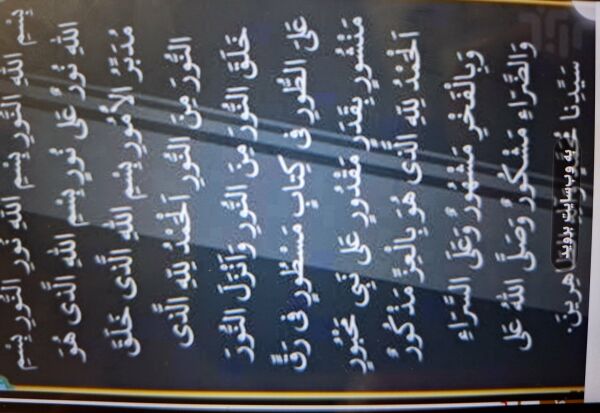 بِسْمِ اللهِ النُّورِ بِسْمِ اللهِ نُورِ النُّورِ بِسْمِ
اللهِ نُورٌ عَلى نُورٍ بِسْمِ اللهِ الَّذى هُوَ
مُدَبِّرُ الْاُمُورِ بِسْمِ اللهِ الَّذى خَلَقَ
النُّورَ مِنَ النُّورِ اَلْحَمْدُ لِلهِ الَّذى
خَلَقَ النُّورَ مِنَ النُّورِ وَاَنْزَلَ النُّورَ
عَلىَ الطُّورِ فى كِتابٍ مَسْطُورٍ فى رَقٍّ
مَنْشُورٍ بِقَدَرٍ مَقْدُورٍ عَلى نَبِىٍّ مَحْبُورٍ
اَلْحَمْدُ لِلهِ الَّذى هُوَ بِالْعِزِّ مَذْكُورٌ
وَبِالْفَخْرِ مَشْهُورٌ وَعَلَى السَّرّاءِ
وَالضَّرّاءِ مَشْكُورٌ وَصَلَّى اللهُ عَلى
سَيِّدِنا هِرينَ.
به وب‌سایت بروید